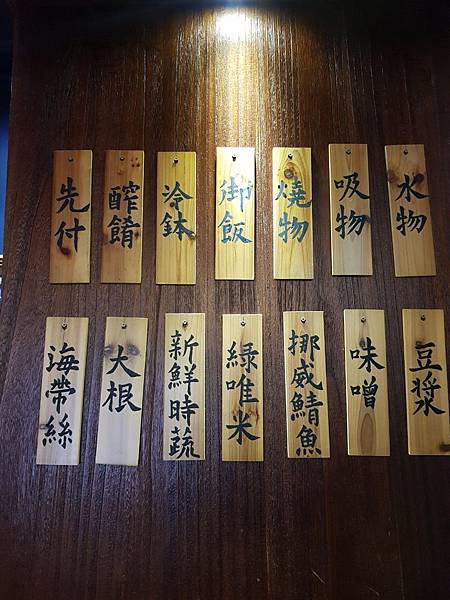 水物
吸物
燒物
御飯
冷鉢
醡餚
先付
豆漿
味噌
挪威鯖魚
綠唯米
新鮮時蔬
大根
海帶絲